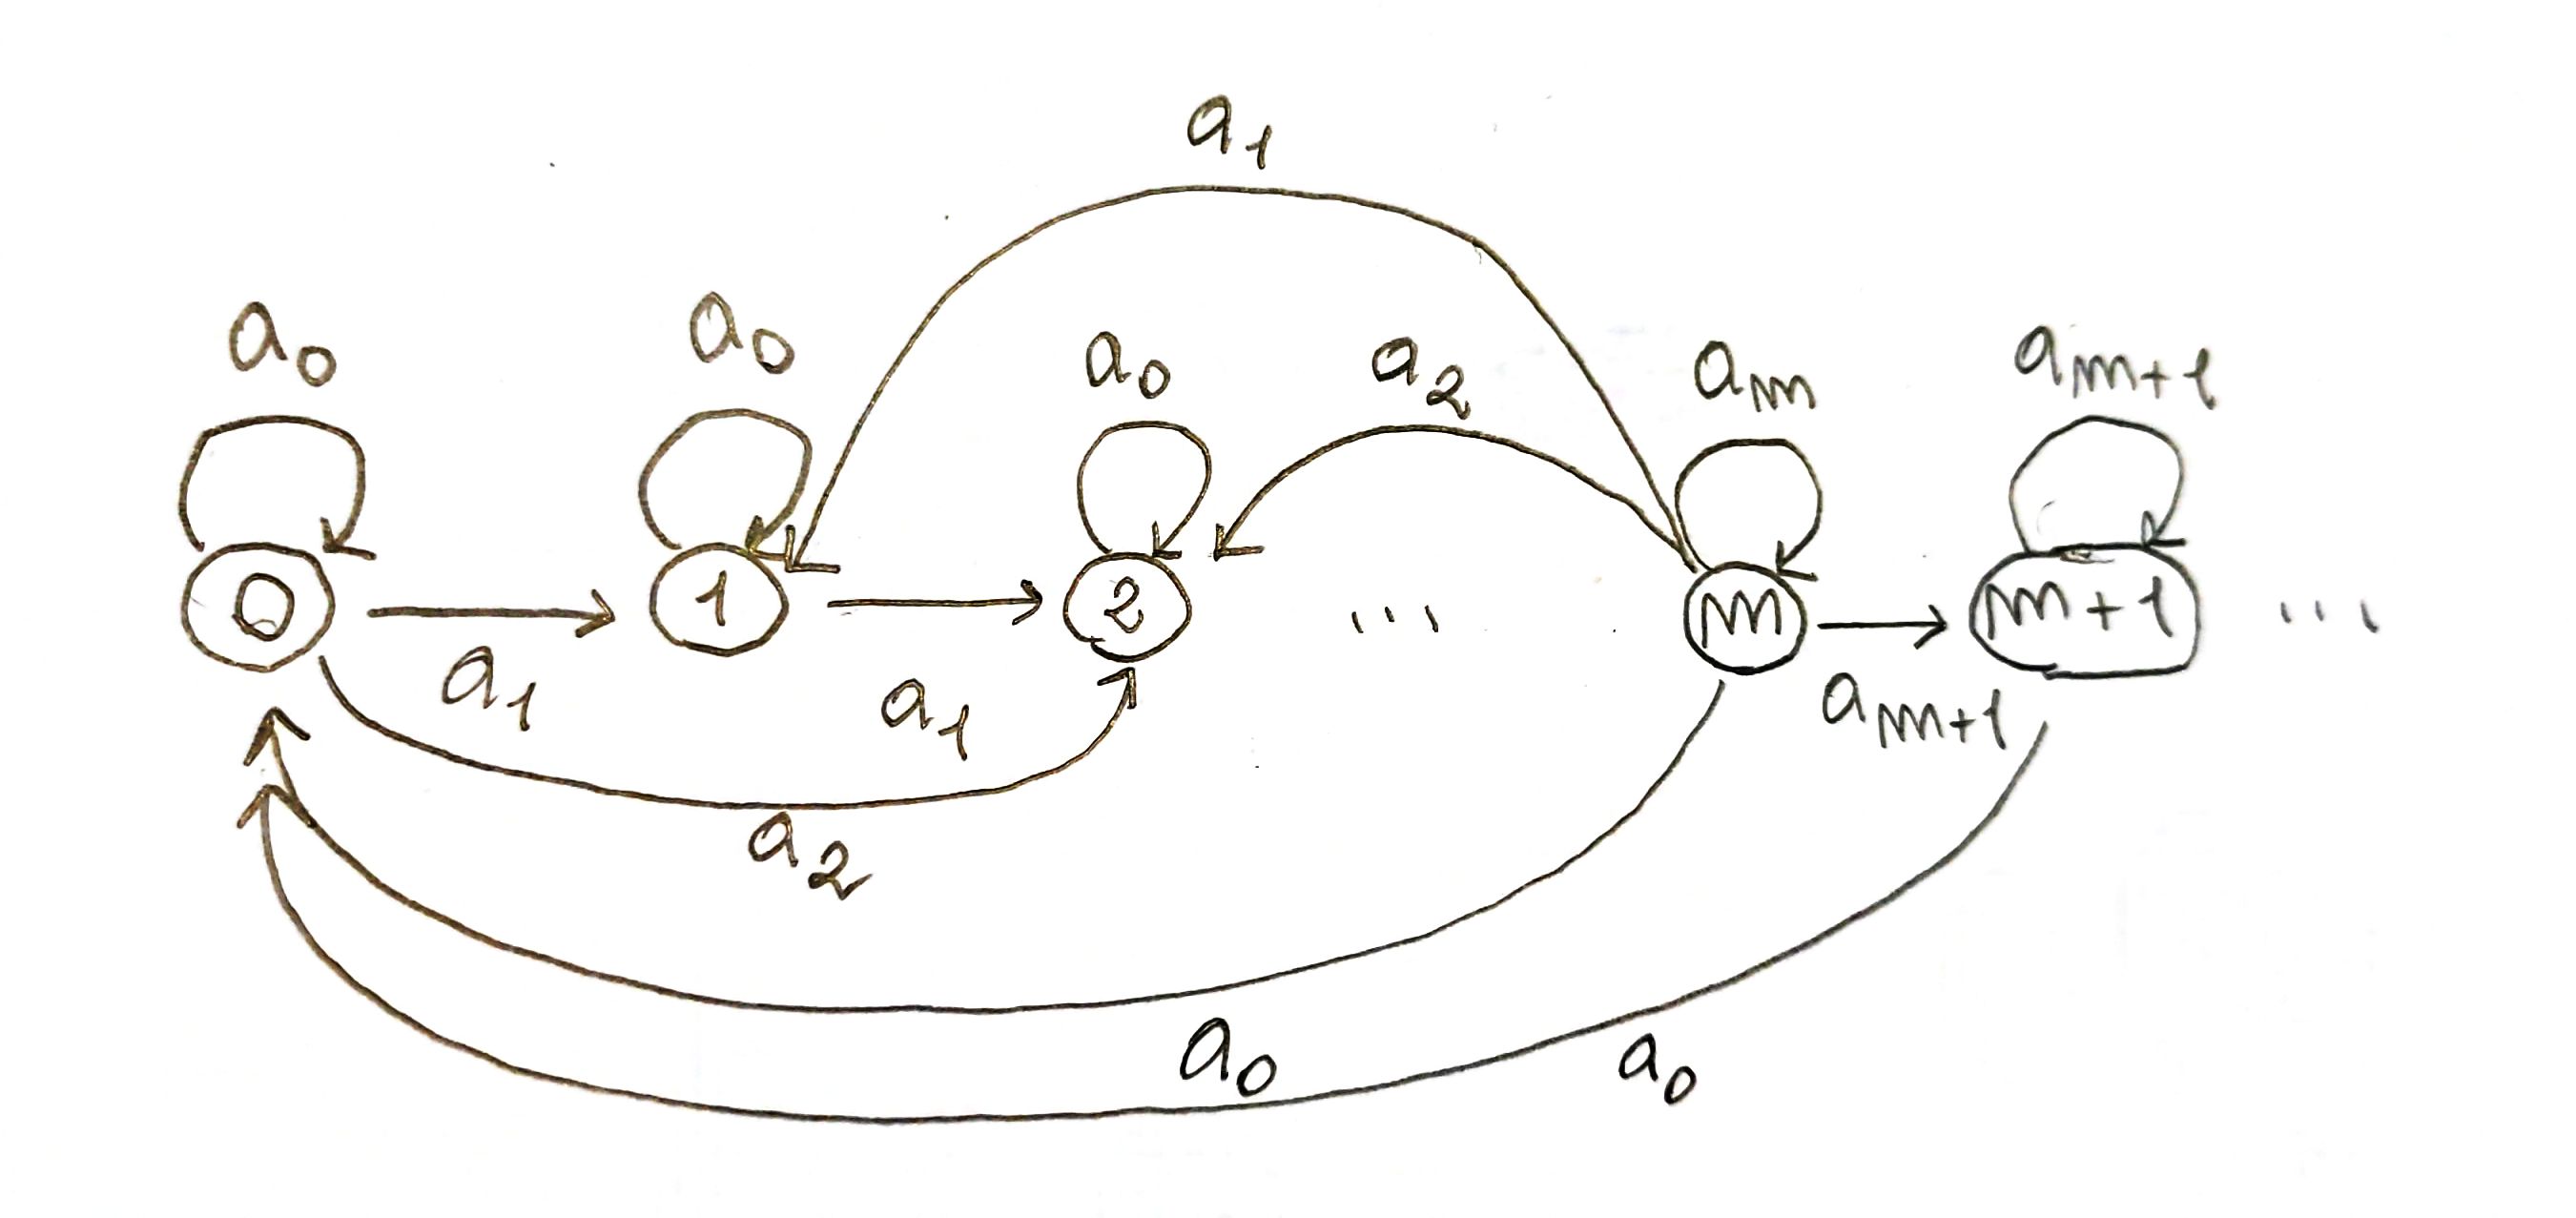 a₁
a₀ a₀ a₀ a₂ aₘ aₘ₊₁
0 1 2 ... m m+1 ...
a₁ a₁ aₘ₊₁
a₂
a₀ a₀